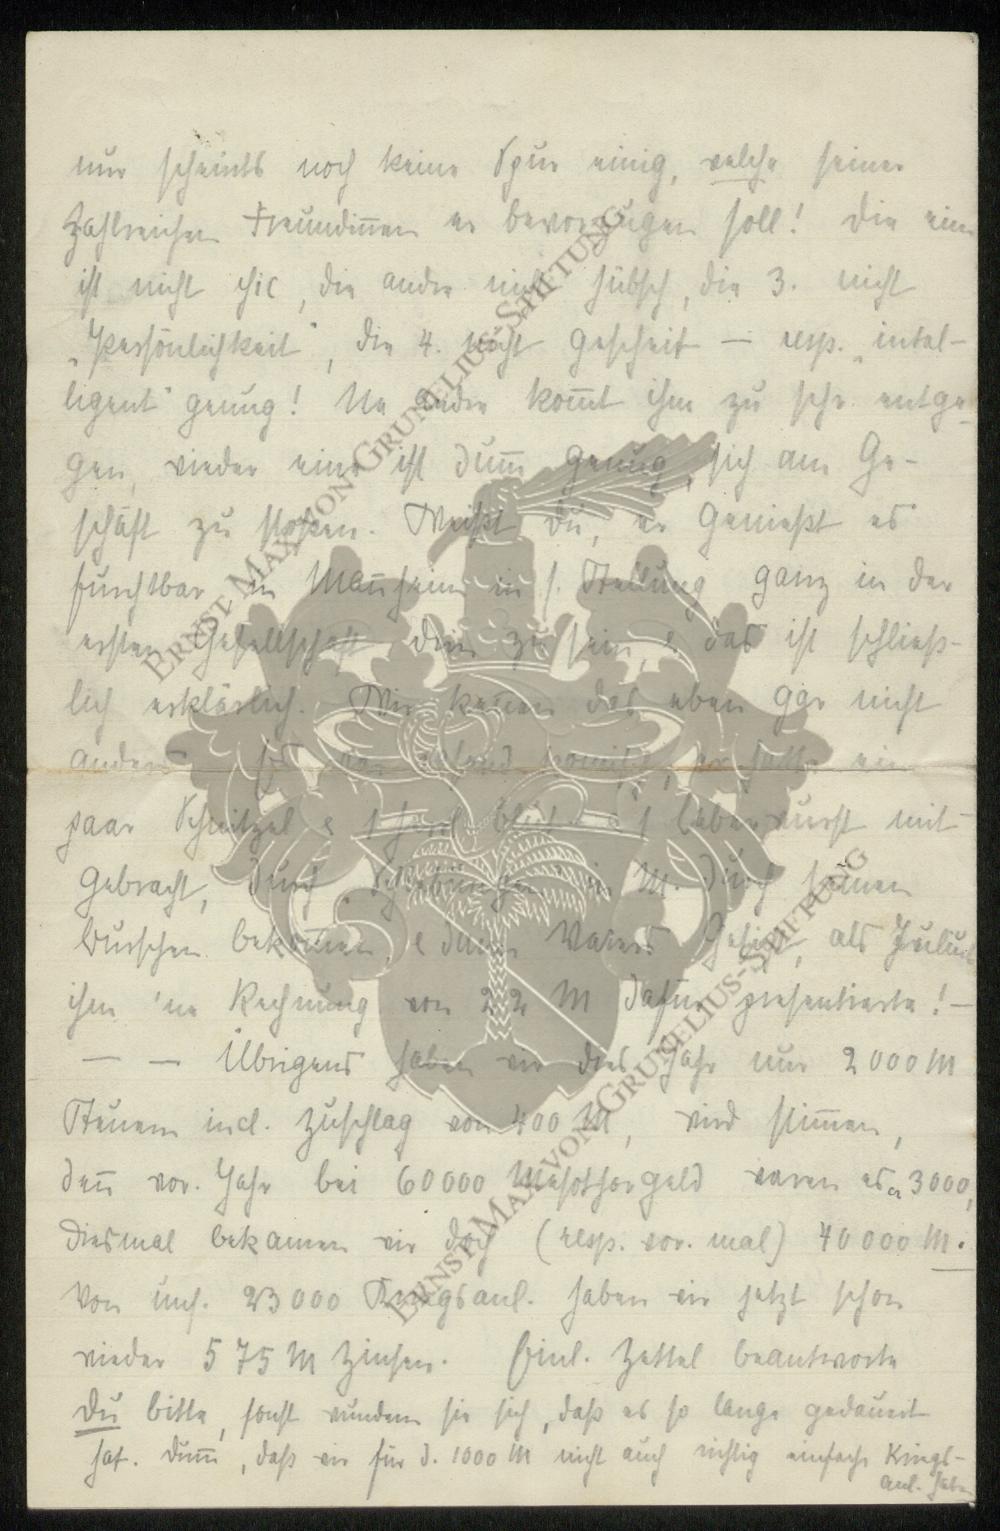 nur scheints noch keine Spur einig, welche seiner
zahlreichen Freundinnen er bevorzugen soll! Die eine
ist nicht chic, die andre nicht hübsch, die 3. nicht
„Persönlichkeit", die 4. nicht gescheit – resp. „intel-
ligent" genug! Ne andre kom̅t ihm zu sehr entge-
gen, wieder eine ist dum̅ genug, sich am Ge-
schäft zu stoßen. Weißt Du, er genießt es
furchtbar, in Man̅heim in s. Stellung ganz in der
ersten Gesellschaft drin zu sein, & das ist schließ-
lich erklärlich. Wir ken̅en das eben gar nicht
anders. Es war, er hatte ein
paar Schnitzel & 1 & 1 Leberwurst mit-
gebracht, durch in M. durch seinen
Burschen bekom̅en, & Vaters Gesicht, als Julius
ihm 'ne Rechnung von 22 M dafür presentierte! –
– – Übrigens haben wir dies Jahr nur 2000 M
Steuern incl. Zuschlag von 400 M, wird stim̅en,
den̅ vor. Jahr bei 60000 Mesothorgeld waren es ca 3000,
diesmal bekamen wir doch (resp. vor. mal) 40000 M.
Von uns. 23000 Kriegsanl. haben wir jetzt schon
wieder 575 M Zinsen. Einl. Zettel beantworte
Du bitte, sonst wundern sie sich, daß es so lange gedauert
hat. Dum̅, daß wir für d. 1000 M nicht auch richtig einfache Kriegs-
anl. haben
ERNST MAX VON GRUNELIUS-STIFTUNG
ERNST MAX VON GRUNELIUS-STIFTUNG